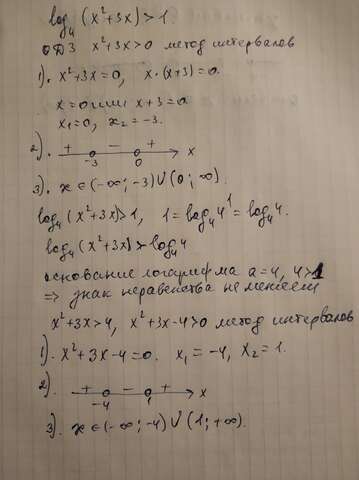 log₄ (x²+3x)>1
ОДЗ x²+3x>0 метод интервалов
1). x²+3x=0, x·(x+3)=0.
x=0 или x+3=0
x₁=0, x₂=-3.
2). + - + x
-3 0
3). x∈(-∞;-3)∪(0;∞).
log₄(x²+3x)>1, 1=log₄4¹=log₄4.
log₄(x²+3x)>log₄4
основание логарифма a=4, 4>1
=> знак неравенства не меняем
x²+3x>4, x²+3x-4>0 метод интервалов
1). x²+3x-4=0. x₁=-4, x₂=1.
2). + - + x
-4 1
3). x∈(-∞;-4)∪(1;+∞).